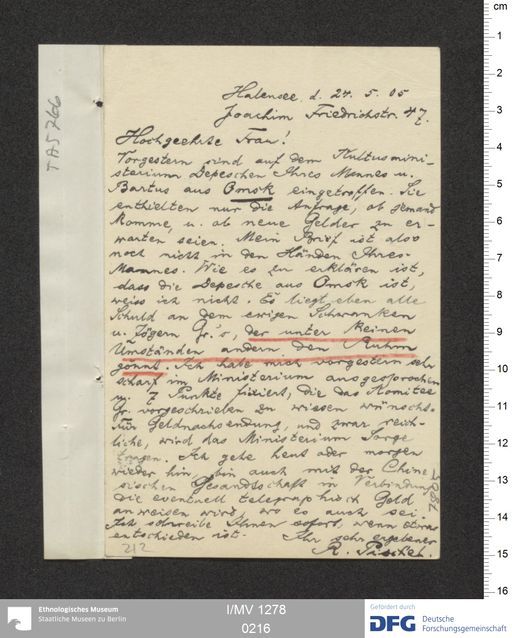 TA5766
Halensee d. 24. 5. 05
Joachim Friedrichstr. 47 I.
Hochgeehrte Frau!
Vorgestern sind auf dem Kultusmini-
sterium Depeschen Ihres Mannes u.
Bartus aus Omsk eingetroffen. Sie
enthielten nur die Anfrage, ob jemand
komme, u. ob neue Gelder zu er-
warten seien. Mein Brief ist also
noch nicht in den Händen Ihres
Mannes. Wie es zu erklären ist,
dass die Depesche aus Omsk ist,
weiss ich nicht. Es liegt eben alle
Schuld an dem ewigen Schwanken
u. Zögern Gr's, der unter keinen
Umständen andern den Ruhm
gönnt. Ich habe mich vorgestern sehr
scharf im Ministerium ausgesprochen
u. 7 Punkte fixiert, die das Komitee
Gr. vorgeschrieben zu wissen wünscht.
Für Geldnachsendung, und zwar reich-
liche, wird das Ministerium Sorge
tragen. Ich gehe heut oder morgen
wieder hin, bin auch mit der Chine-
sischen Gesandtschaft in Verbindung
die eventuell telegraphisch Geld
anweisen wird, wo es auch sei.
Ich schreibe Ihnen sofort, wenn etwas
entschieden ist. Ihr sehr ergebener
R. Pischel.
212
cm
1
2
3
4
5
6
7
8
9
10
11
12
13
14
15
16
Ethnologisches Museum
Staatliche Museen zu Berlin
I/MV 1278
0216
Gefördert durch
DFG Deutsche
Forschungsgemeinschaft